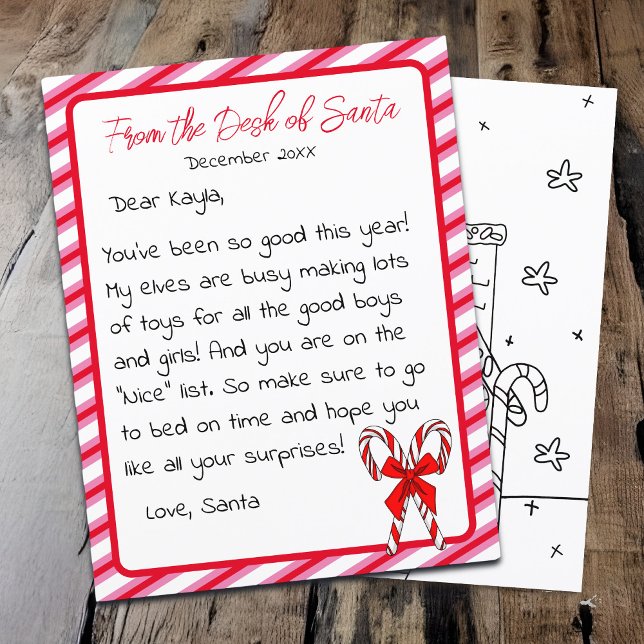 From the Desk of Santa
December 20XX
Dear Kayla,
You've been so good this year!
My elves are busy making lots
of toys for all the good boys
and girls! And you are on the
"Nice" list. So make sure to go
to bed on time and hope you
like all your surprises!
Love, Santa